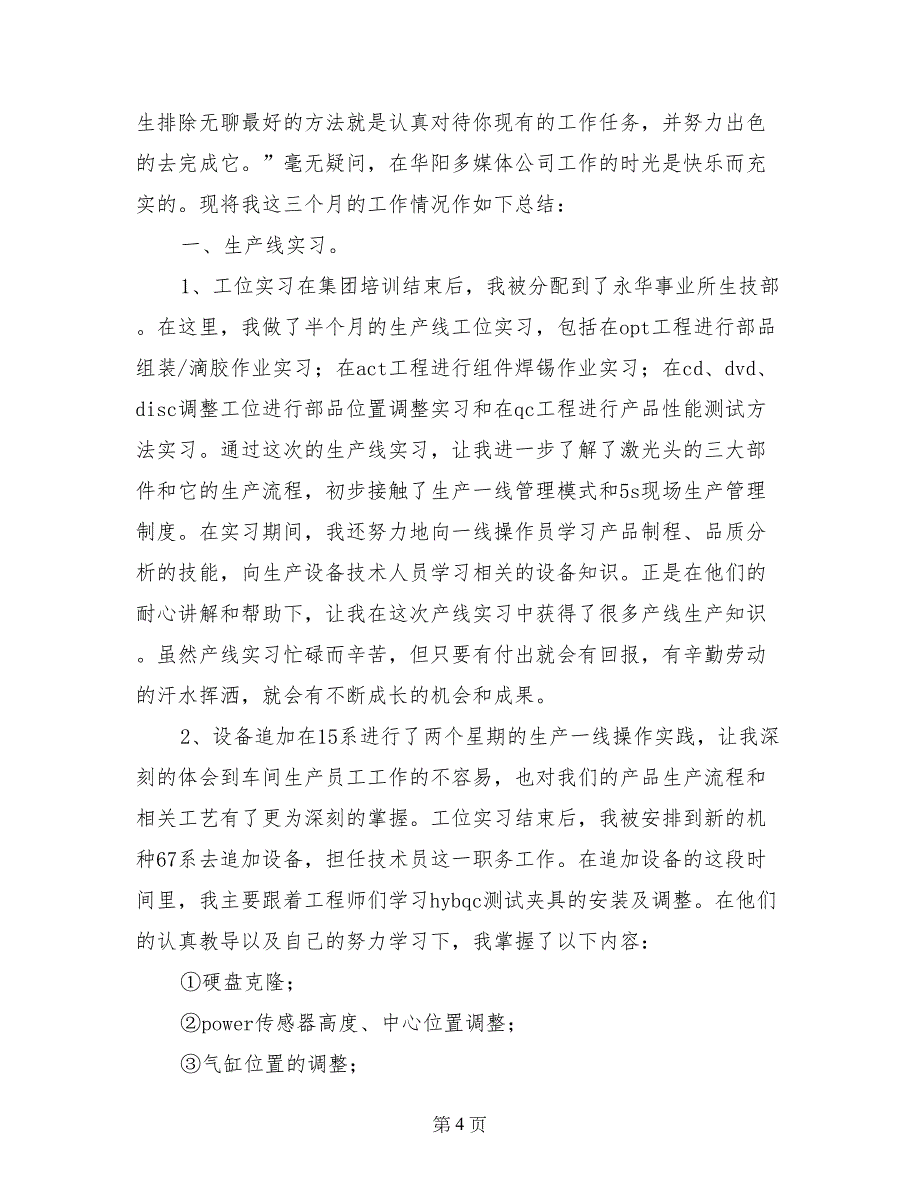 生排除无聊最好的方法就是认真对待你现有的工作任务，并努力出色
的去完成它。”毫无疑问，在华阳多媒体公司工作的时光是快乐而充
实的。现将我这三个月的工作情况作如下总结：
一、生产线实习。
1、工位实习在集团培训结束后，我被分配到了永华事业所生技部
。在这里，我做了半个月的生产线工位实习，包括在opt工程进行部品
组装/滴胶作业实习；在act工程进行组件焊锡作业实习；在cd、dvd、
disc调整工位进行部品位置调整实习和在qc工程进行产品性能测试方
法实习。通过这次的生产线实习，让我进一步了解了激光头的三大部
件和它的生产流程，初步接触了生产一线管理模式和5s现场生产管理
制度。在实习期间，我还努力地向一线操作员学习产品制程、品质分
析的技能，向生产设备技术人员学习相关的设备知识。正是在他们的
耐心讲解和帮助下，让我在这次产线实习中获得了很多产线生产知识
。虽然产线实习忙碌而辛苦，但只要有付出就会有回报，有辛勤劳动
的汗水挥洒，就会有不断成长的机会和成果。
2、设备追加在15系进行了两个星期的生产一线操作实践，让我深
刻的体会到车间生产员工工作的不容易，也对我们的产品生产流程和
相关工艺有了更为深刻的掌握。工位实习结束后，我被安排到新的机
种67系去追加设备，担任技术员这一职务工作。在追加设备的这段时
间里，我主要跟着工程师们学习hybqc测试夹具的安装及调整。在他们
的认真教导以及自己的努力学习下，我掌握了以下内容：
①硬盘克隆；
②power传感器高度、中心位置调整；
③气缸位置的调整；
第 4 页